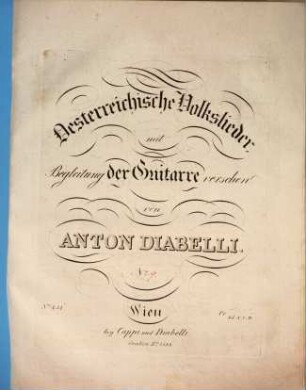 Oesterreichische Volkslieder,
mit
Begleitung der Guitarre versehen
von
ANTON DIABELLI.
Wien
bey Cappi und Diabelli